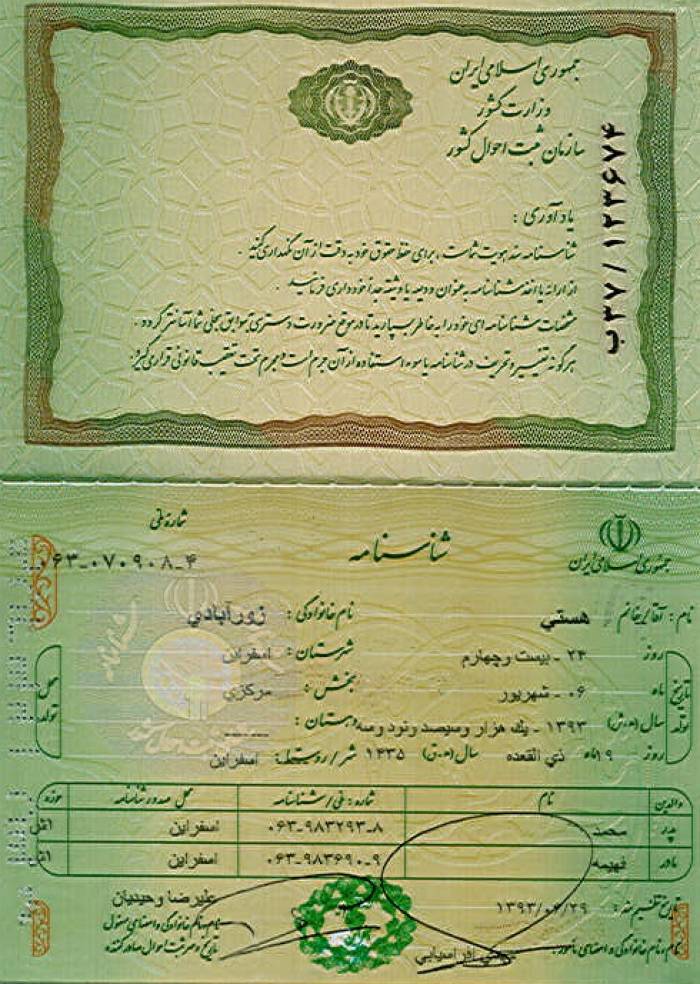 جمهوری اسلامی ایران
وزارت کشور
سازمان ثبت احوال کشور
ب۳۷/۱۲۳۶۷۴
یادآوری :
شناسنامه سند هویت شماست ، برای حفظ حقوق خود به دقت از آن نگهداری کنید .
از ارائه یا اخذ شناسنامه به عنوان ودیعه یا وثیقه جداً خودداری فرمائید .
مشخصات شناسنامه ای خود را به خاطر بسپارید تا در موقع ضرورت دسترسی به سوابق سجلی شما آسانتر گردد .
هرگونه تغییر و تحریف در شناسنامه یا سوء استفاده از آن جرم است و مجرم تحت تعقیب قانونی قرار می گیرد.
جمهوری اسلامی ایران
شناسنامه
شماره ملی
۰۶۳-۰۷۰۹۰۸-۴
نام : آقا/خانم هستي نام خانوادگی : زورآبادي
تاریخ تولد
روز ۲۴ - بيست وچهارم شهرستان : اسفراين
ماه ۰۶ - شهريور بخش : مرکزي
سال (ه.ش) ۱۳۹۳ - يك هزار وسيصد ونود وسه دهستان : -----
روز ۱۹ ماه ذي القعده سال (ه.ق) ۱۴۳۵ شهر/روستا : اسفراين
محل تولد
والدین نام شماره : ملی/شناسنامه محل صدور شناسنامه حوزه
پدر محمد ۰۶۳-۹۸۳۲۹۳-۸ اسفراين
مادر فهيمه ۰۶۳-۹۸۳۶۹۰-۹ اسفراين
تاریخ تنظیم سند : ۱۳۹۳/۰۶/۲۹
عليرضا وحيديان
نام و نام خانوادگی و امضای مأمور :
نام و نام خانوادگی و امضای مسئول
تاریخ و مهر ثبت احوال صادرکننده